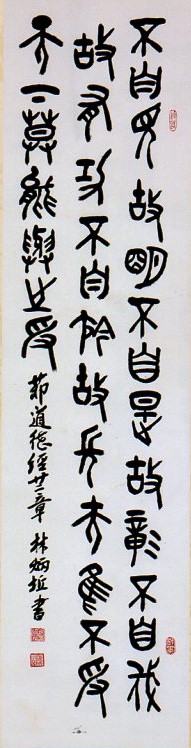 不自見故明不自是故彰不自伐
故有功不自矜故長夫隹不爭
天下莫能與之爭 節道德經廿二章 林炳書